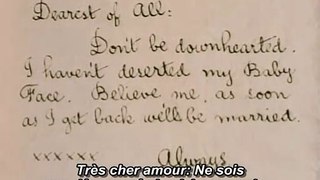 Dearest of All:
Don't be downhearted.
I haven't deserted my Baby
Face. Believe me, as soon
as I get back we'll be married.
xxxxxx Always
Très cher amour: Ne sois